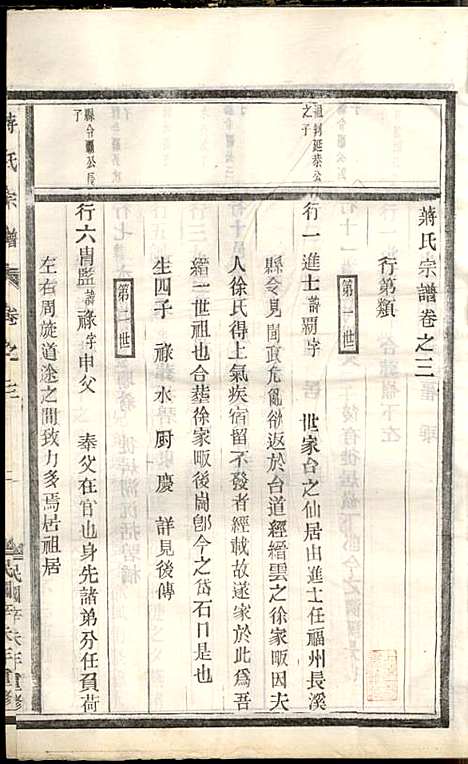 蔣氏宗譜卷之三
行第類
第一世
祖訶延恭公之子
行一進士諱霸字 世家台之仙居由進士任福州長溪
縣令見閩政危亂欲返於台道經縉雲之徐家畈因夫
人徐氏得土氣疾宿留不發者經載故遂家於此為吾
縉一世祖也合葬徐家畈後崗卽今之岱石口是也
生四子 祿 水 厨 慶 詳見後傳
第二世
縣令霸公長子
行六胄監諱祿字申父 奉父在官也身先諸弟分任負荷
左右周旋道途之間致力多焉居祖居
蔣氏宗譜 卷之三 一 民國辛未年重修